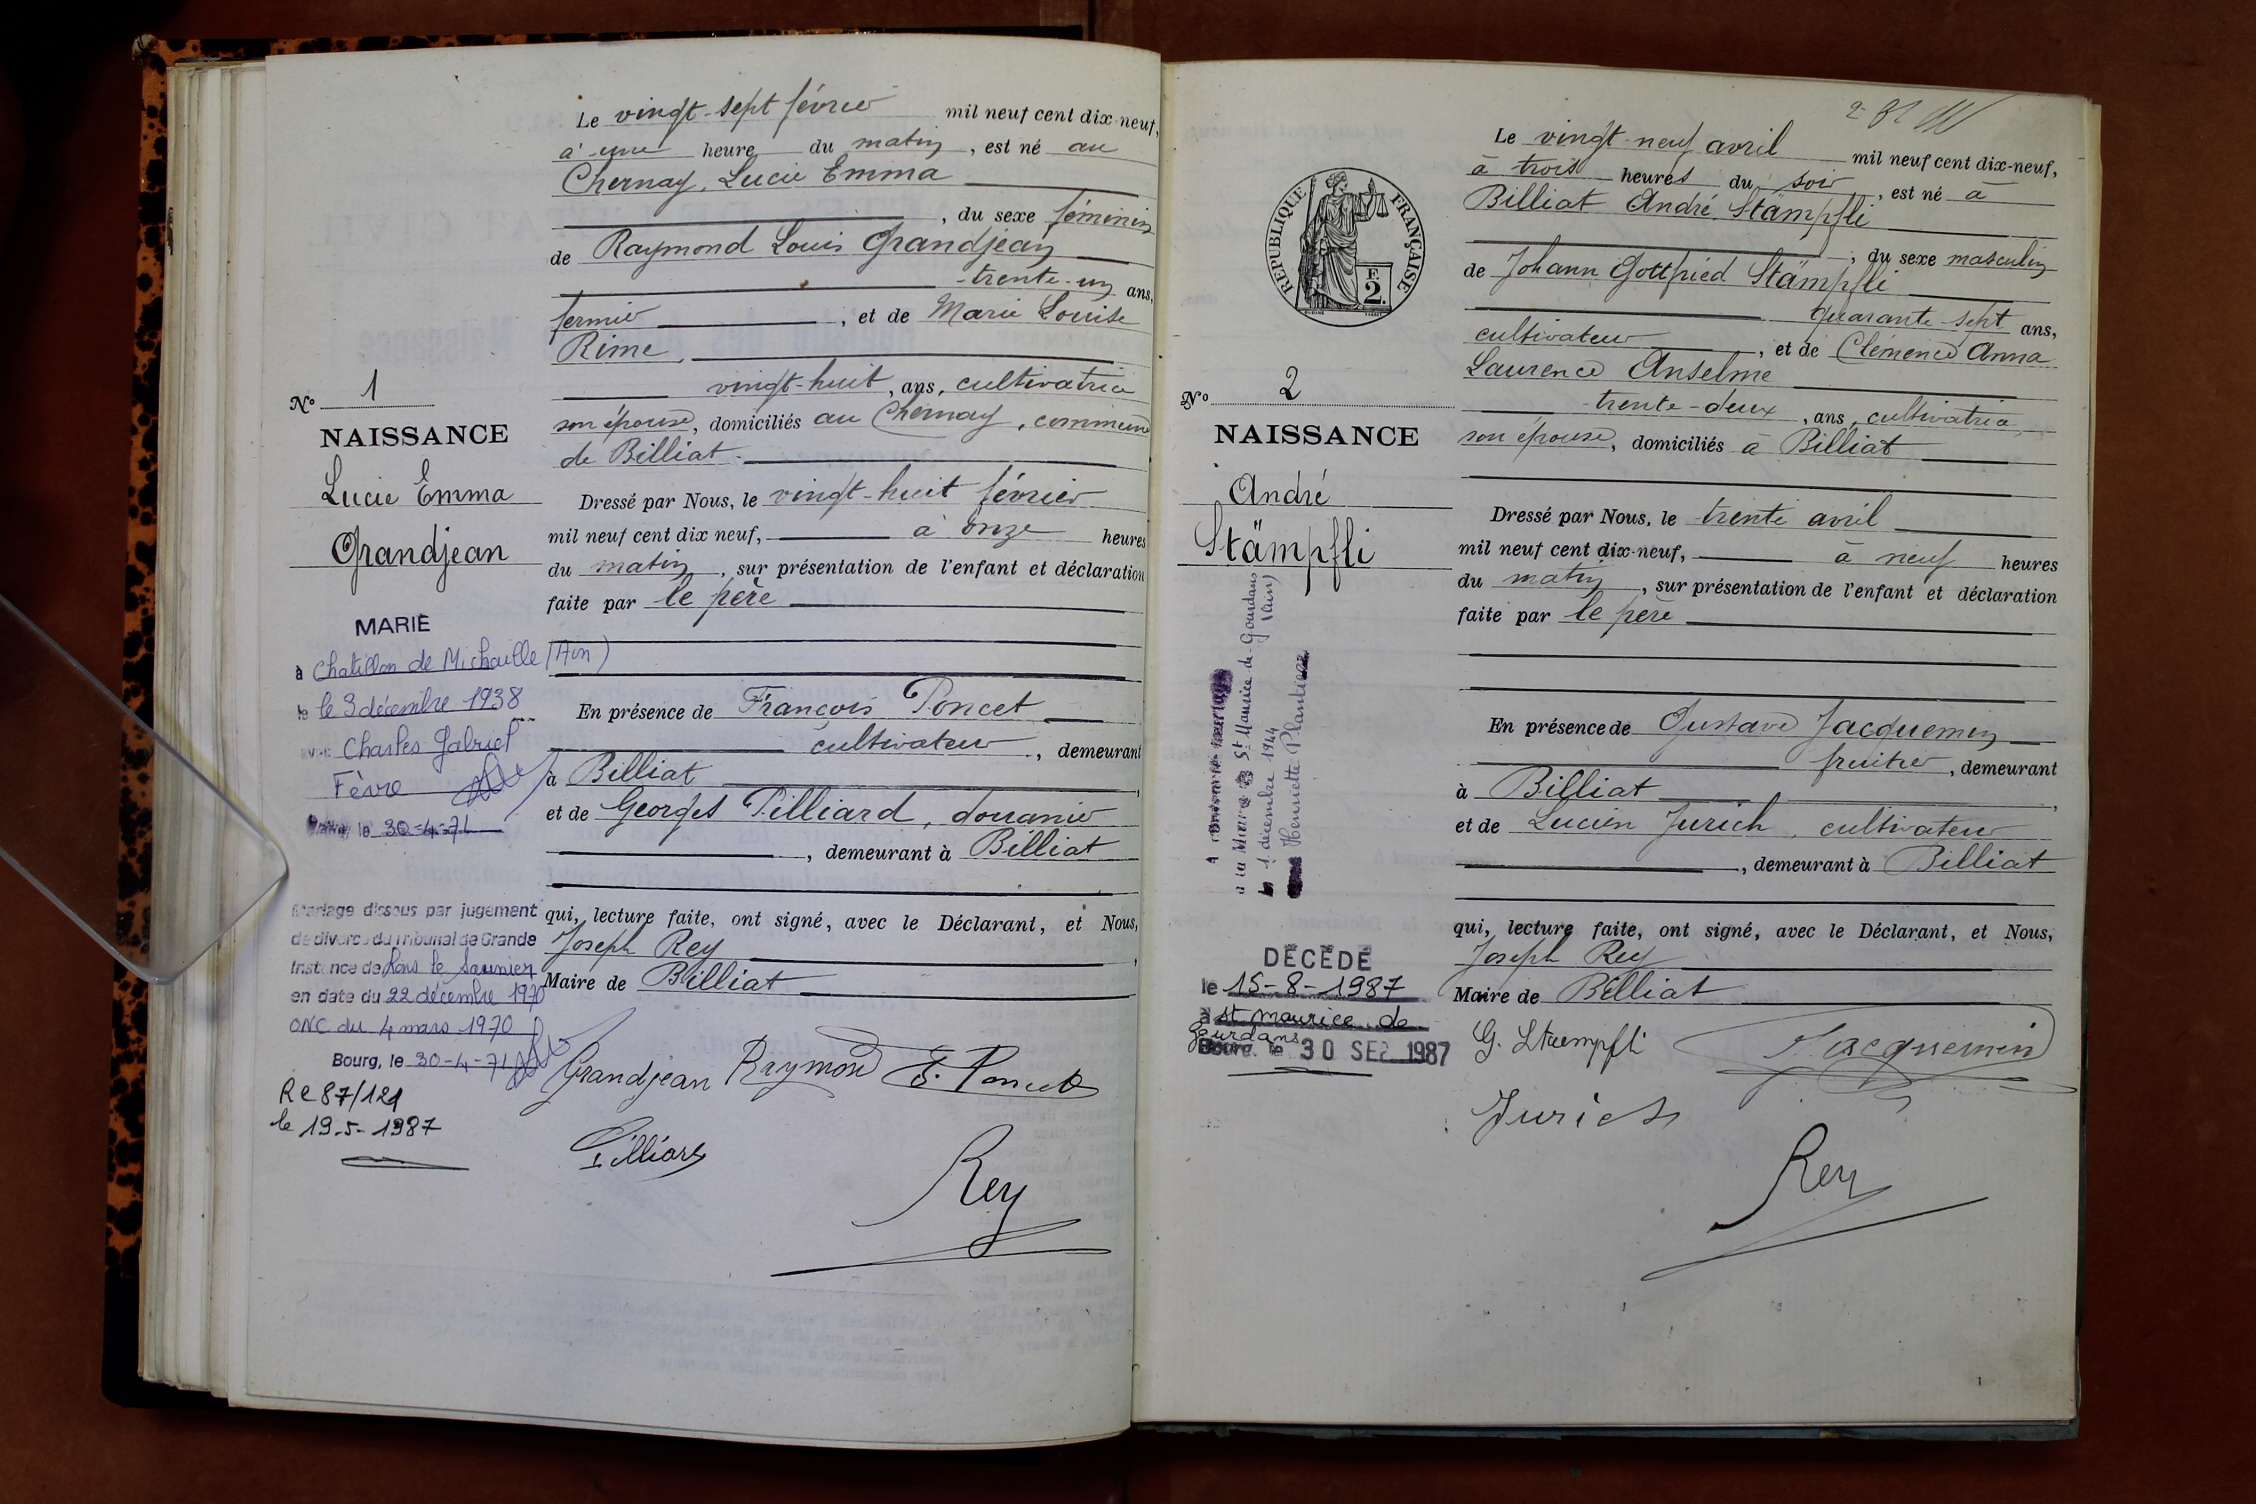 Le vingt-sept février mil neuf cent dix-neuf,
à une heure du matin, est né au
Chernay, Lucie Emma
, du sexe féminin
de Raymond Louis Grandjean
trente-un ans,
fermier, et de Marie Louise
Rime,
vingt-huit, ans, cultivatrice
son épouse, domiciliés au Chernay, commune
de Billiat.
Nº 1
NAISSANCE
Lucie Emma
Grandjean
Dressé par Nous, le vingt-huit février
mil neuf cent dix neuf, à onze heures
du matin, sur présentation de l'enfant et déclaration
faite par le père
MARIÉ
à Chatillon de Michaille (Ain)
le le 3 décembre 1938
avec Charles Gabriel
Fèvre
le 30-4-71
En présence de François Poncet
cultivateur, demeurant
à Billiat,
et de Georges Pilliard, douanier
, demeurant à Billiat
Mariage dissous par jugement
de divorce du Tribunal de Grande
Instance de Lons le Saunier
en date du 22 décembre 1970
ONC du 4 mars 1970
Bourg, le 30-4-71
Re 87/121
le 19-5-1987
qui, lecture faite, ont signé, avec le Déclarant, et Nous,
Joseph Rey,
Maire de Billiat
Grandjean Raymond F. Poncet
Pilliard
Rey
Le vingt-neuf avril mil neuf cent dix-neuf,
à trois heures du soir, est né à
Billiat André Stämpfli
, du sexe masculin
de Johann Gottfried Stämpfli
quarante-sept ans,
cultivateur, et de Clémence Anna
Laurence Anselme
trente-deux, ans, cultivatrice,
son épouse, domiciliés à Billiat
RÉPUBLIQUE FRANÇAISE
F.
2.
Nº 2
NAISSANCE
André
Stämpfli
Dressé par Nous, le trente avril
mil neuf cent dix-neuf, à neuf heures
du matin, sur présentation de l'enfant et déclaration
faite par le père
à la Mairie St Maurice-de-Gourdans
(Ain)
décembre 1944
Henriette Plantier
En présence de Gustave Jacquemin
fruitier, demeurant
à Billiat,
et de Lucien Jurich, cultivateur
, demeurant à Billiat
DÉCÉDÉ
le 15-8-1987
à st maurice de
Gourdans
Bourg, le 30 SEP 1987
qui, lecture faite, ont signé, avec le Déclarant, et Nous,
Joseph Rey
Maire de Billiat
G. Staempfli Jacquemin
Jurich
Rey
1